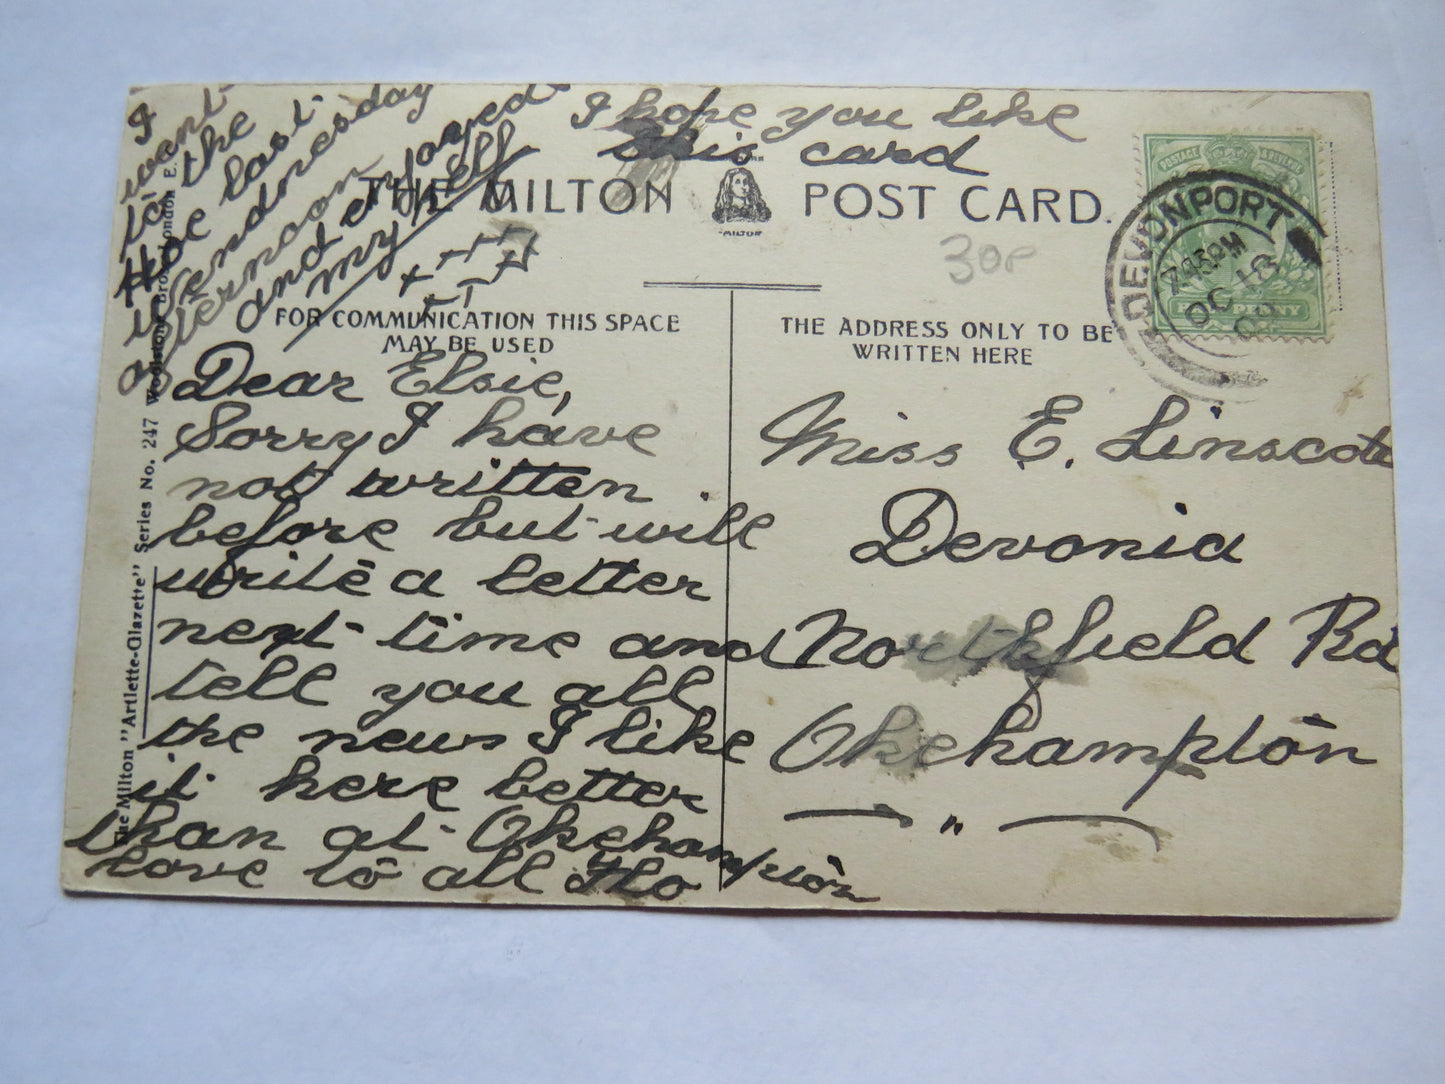 I
went
to the
Hoe last
wendnesday
afternoon
and enjoyed
my self
I hope you like
this card
THE MILTON POST CARD.
"MILTON"
30p
DEVONPORT
7.45PM
OC 18
POSTAGE & REVENUE
FOR COMMUNICATION THIS SPACE
MAY BE USED
THE ADDRESS ONLY TO BE
WRITTEN HERE
Dear Elsie,
Sorry I have
not written
before but will
write a letter
next time and
tell you all
the news I like
it here better
than at Okehampton
love to all
Miss E. Linscott
Devonia
Northfield Rd
Okehampton
"
The Milton "Artlette-Glazette" Series No. 247 Woolstone Bros. London E.